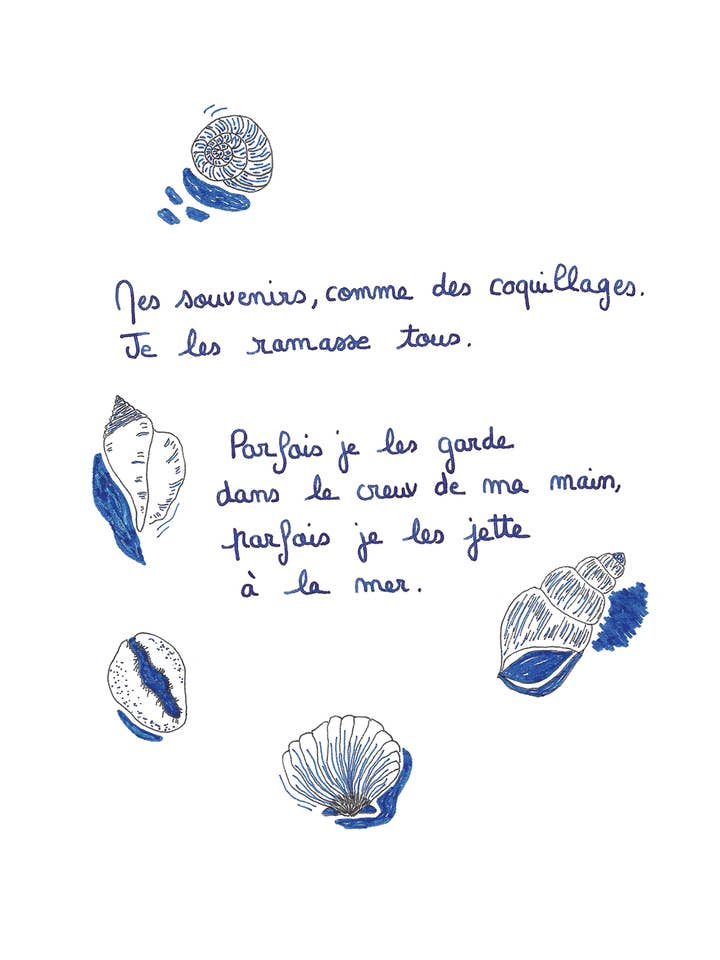 Mes souvenirs, comme des coquillages.
Je les ramasse tous.
Parfois je les garde
dans le creux de ma main,
parfois je les jette
à la mer.